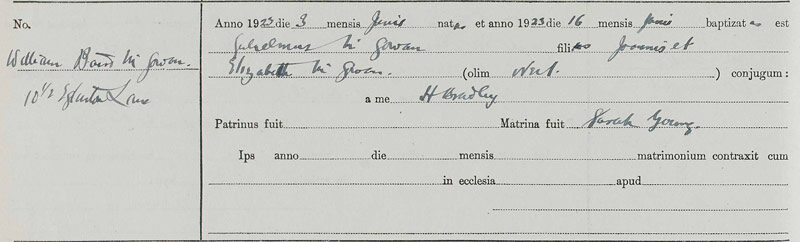 No.
William Baird McGowan.
10 1/2 Eglinton Lane
Anno 1923 die 3 mensis Junis natus et anno 1923 die 16 mensis Junis baptizatus est
Gulielmus McGowan filius Joannis et
Elizabeth McGowan. (olim) conjugum :
a me H Bradley
Patrinus fuit Matrina fuit Sarah Young.
Ips anno die mensis matrimonium contraxit cum
in ecclesia apud